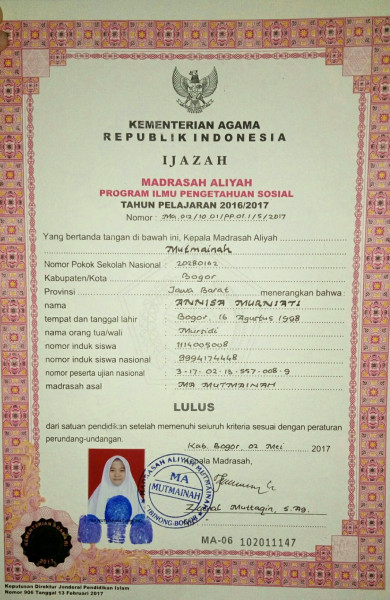 KEMENTERIAN AGAMA
REPUBLIK INDONESIA
IJAZAH
MADRASAH ALIYAH
PROGRAM ILMU PENGETAHUAN SOSIAL
TAHUN PELAJARAN 2016/2017
Nomor : Ma.02/10.01/PP.01.1/5/2017
Yang bertanda tangan di bawah ini, Kepala Madrasah Aliyah
Mutmainah
Nomor Pokok Sekolah Nasional : 20280162
Kabupaten/Kota : Bogor
Provinsi : Jawa Barat menerangkan bahwa :
nama : ANNISA MURNIATI
tempat dan tanggal lahir : Bogor, 16 Agustus 1998
nama orang tua/wali : Mursidi
nomor induk siswa : 1114005008
nomor induk siswa nasional : 9994174448
nomor peserta ujian nasional : 3-17-02-13-557-008-9
madrasah asal : MA MUTMAINAH
LULUS
dari satuan pendidikan setelah memenuhi seluruh kriteria sesuai dengan peraturan
perundang-undangan.
Kab. Bogor, 02 Mei 2017
Kepala Madrasah,
MADRASAH ALIYAH MUTMAINAH
MA
MUTMAINAH
CIBINONG-BOGOR
Muttaqin, S.Ag.
MA-06 102011147
Keputusan Direktur Jenderal Pendidikan Islam
Nomor 906 Tanggal 13 Februari 2017